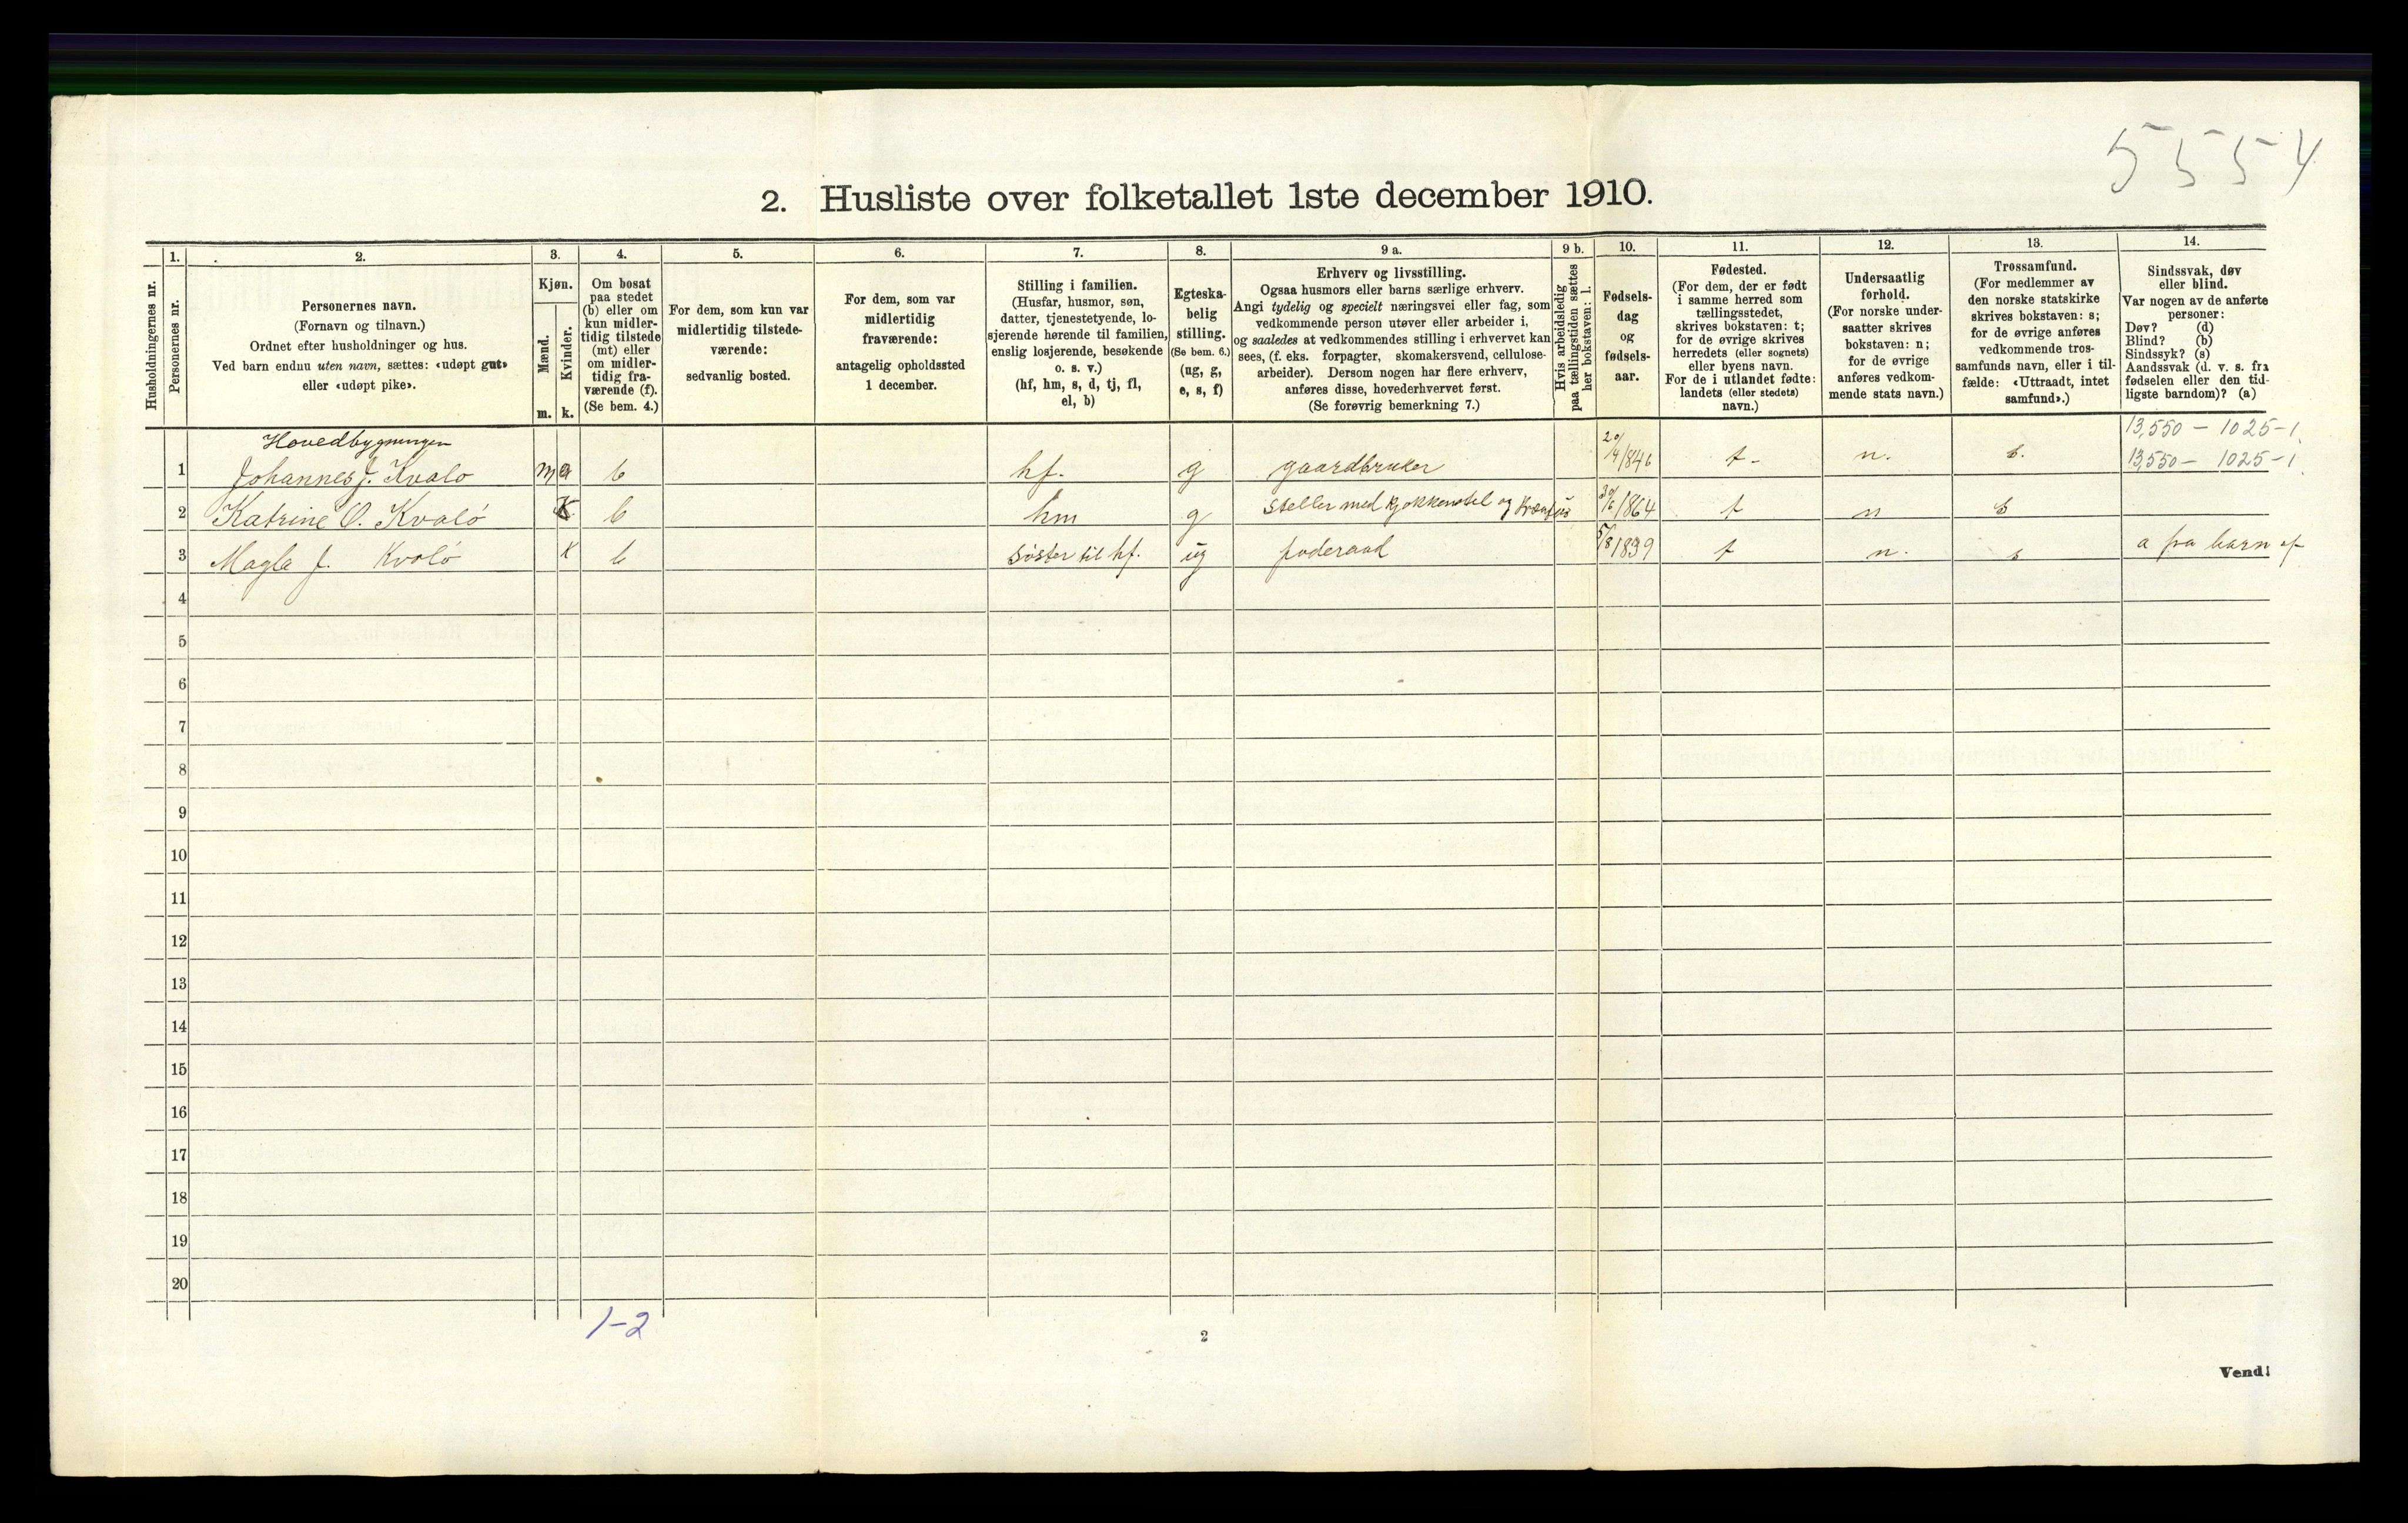 5554
2. Husliste over folketallet 1ste december 1910.
Husholdningernes nr.
1.
Personernes nr.
2.
Personernes navn.
(Fornavn og tilnavn.)
Ordnet efter husholdninger og hus.
Ved barn endnu uten navn, sættes: «udøpt gut»
eller «udøpt pike».
3.
Kjøn.
Mænd.
m.
Kvinder.
k.
4.
Om bosat
paa stedet
(b) eller om
kun midler-
tidig tilstede
(mt) eller
om midler-
tidig fra-
værende (f).
(Se bem. 4.)
5.
For dem, som kun var
midlertidig tilstede-
værende:
sedvanlig bosted.
6.
For dem, som var
midlertidig
fraværende:
antagelig opholdssted
1 december.
7.
Stilling i familien.
(Husfar, husmor, søn,
datter, tjenestetyende, lo-
sjerende hørende til familien,
enslig losjerende, besøkende
o. s. v.)
(hf, hm, s, d, tj, fl,
el, b)
8.
Egteska-
belig
stilling.
(Se bem. 6.)
(ug, g,
e, s, f)
9 a.
Erhverv og livsstilling.
Ogsaa husmors eller barns særlige erhverv.
Angi tydelig og specielt næringsvei eller fag, som
vedkommende person utøver eller arbeider i,
og saaledes at vedkommendes stilling i erhvervet kan
sees, (f. eks. forpagter, skomakersvend, cellulose-
arbeider). Dersom nogen har flere erhverv,
anføres disse, hovederhvervet først.
(Se forøvrig bemerkning 7.)
9 b.
Hvis arbeidsledig
paa tællingstiden sættes
her bokstaven: l.
10.
Fødsels-
dag
og
fødsels-
aar.
11.
Fødested.
(For dem, der er født
i samme herred som
tællingsstedet,
skrives bokstaven: t;
for de øvrige skrives
herredets (eller sognets)
eller byens navn.
For de i utlandet fødte:
landets (eller stedets)
navn.)
12.
Undersaatlig
forhold.
(For norske under-
saatter skrives
bokstaven: n;
for de øvrige
anføres vedkom-
mende stats navn.)
13.
Trossamfund.
(For medlemmer av
den norske statskirke
skrives bokstaven: s;
for de øvrige anføres
vedkommende tros-
samfunds navn, eller i til-
fælde: «Uttraadt, intet
samfund».)
14.
Sindssvak, døv
eller blind.
Var nogen av de anførte
personer:
Døv? (d)
Blind? (b)
Sindssyk? (s)
Aandssvak (d. v. s. fra
fødselen eller den tid-
ligste barndom)? (a)
Hovedbygningen
13,550 - 1025-1.
1 Johannes J. Kvalo m b hf. g gaardbruker 20/4 1846 t - n. s. 13,550 - 1025-1.
2 Katrine O. Kvaló k b hm g Steller med kjøkkenstel og 1864 t n s
3 Magla J. Kvaló k b Søster til hf. ug foderaad 5/8 1839 t n. s a fra barn af
4
5
6
7
8
9
10
11
12
13
14
15
16
17
18
19
20
1-2
2
Vend!